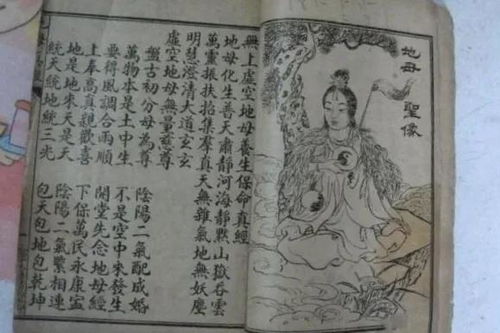 地母 聖像
無上虛空地母養生保命真經
地母化生普天肅靜河海靜默山嶽吞雲
萬靈振扶招集羣真天無雜氣地無妖塵
明慧澄清大道玄玄
虛空地母無量慈尊
盤古初分母為尊 陰陽二氣配成婚
萬物本是土中生 不是空中來發生
要得風調合雨順 開堂先念地母經
上奉高真親歡喜 下保萬民永康寧
地是地來天是天 陰陽二氣緊相連
統天統地統三光 包天包地包乾坤